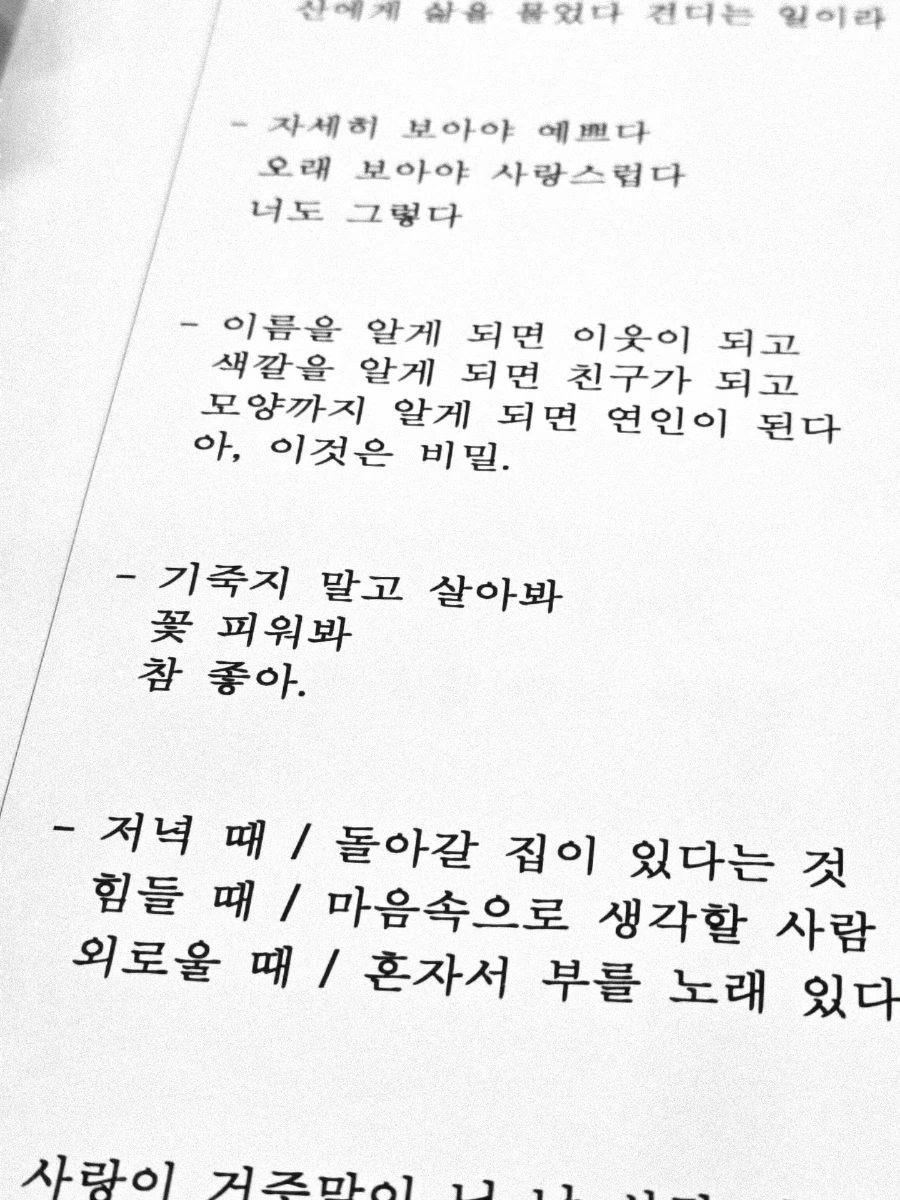 산에게 삶을 물었다 견디는 일이라
- 자세히 보아야 예쁘다
오래 보아야 사랑스럽다
너도 그렇다
- 이름을 알게 되면 이웃이 되고
색깔을 알게 되면 친구가 되고
모양까지 알게 되면 연인이 된다
아, 이것은 비밀.
- 기죽지 말고 살아봐
꽃 피워봐
참 좋아.
- 저녁 때 / 돌아갈 집이 있다는 것
힘들 때 / 마음속으로 생각할 사람
외로울 때 / 혼자서 부를 노래 있다
사랑이